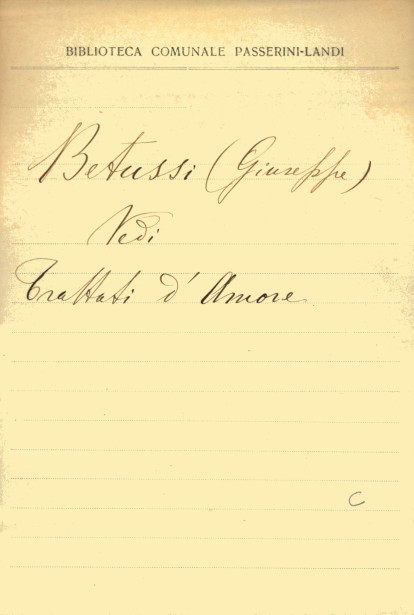 BIBLIOTECA COMUNALE PASSERINI-LANDI
Betussi (Giuseppe)
Vedi
Trattati d' Amore
C